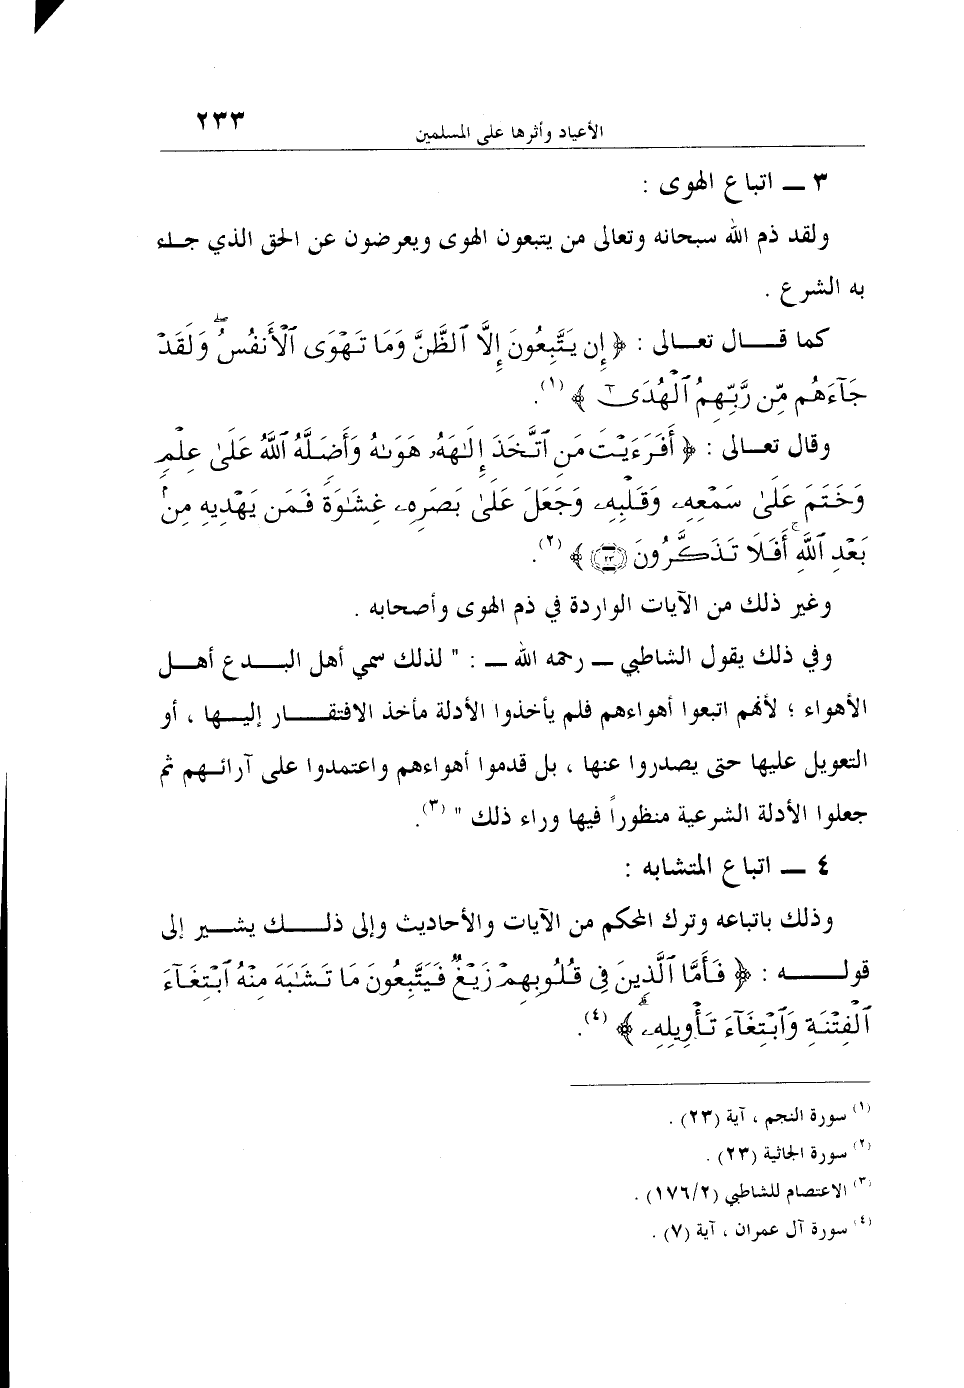 الأعياد وأثرها على المسلمين ٢٣٣
٣ ــ اتباع الهوى :
ولقد ذم الله سبحانه وتعالى من يتبعون الهوى ويعرضون عن الحق الذي جـاء
به الشرع .
كما قـــال تعـــالى : ﴿ إِن يَتَّبِعُونَ إِلَّا ٱلظَّنَّ وَمَا تَهْوَى ٱلْأَنفُسُ ۖ وَلَقَدْ
جَآءَهُم مِّن رَّبِّهِمُ ٱلْهُدَىٰٓ ﴾ (١).
وقال تعـالى : ﴿ أَفَرَءَيْتَ مَنِ ٱتَّخَذَ إِلَٰهَهُۥ هَوَىٰهُ وَأَضَلَّهُ ٱللَّهُ عَلَىٰ عِلْمٍ
وَخَتَمَ عَلَىٰ سَمْعِهِۦ وَقَلْبِهِۦ وَجَعَلَ عَلَىٰ بَصَرِهِۦ غِشَٰوَةً فَمَن يَهْدِيهِ مِنۢ
بَعْدِ ٱللَّهِ ۚ أَفَلَا تَذَكَّرُونَ ﴿٢٣﴾ ﴾ (٢).
وغير ذلك من الآيات الواردة في ذم الهوى وأصحابه .
وفي ذلك يقول الشاطبي ــ رحمه الله ــ : " لذلك سمي أهل البـــدع أهـل
الأهواء ؛ لأنهم اتبعوا أهواءهم فلم يأخذوا الأدلة مأخذ الافتقـــار إليـها ، أو
التعويل عليها حتى يصدروا عنها ، بل قدموا أهواءهم واعتمدوا على آرائـهم ثم
جعلوا الأدلة الشرعية منظوراً فيها وراء ذلك " (٣).
٤ ــ اتباع المتشابه :
وذلك باتباعه وترك المحكم من الآيات والأحاديث وإلى ذلـــك يشـــير إلى
قولـــــه : ﴿ فَأَمَّا ٱلَّذِينَ فِى قُلُوبِهِمْ زَيْغٌ فَيَتَّبِعُونَ مَا تَشَٰبَهَ مِنْهُ ٱبْتِغَآءَ
ٱلْفِتْنَةِ وَٱبْتِغَآءَ تَأْوِيلِهِۦ ۗ ﴾ (٤).
(١) سورة النجم ، آية (٢٣) .
(٢) سورة الجاثية (٢٣) .
(٣) الاعتصام للشاطبي (١٧٦/٢) .
(٤) سورة آل عمران ، آية (٧) .